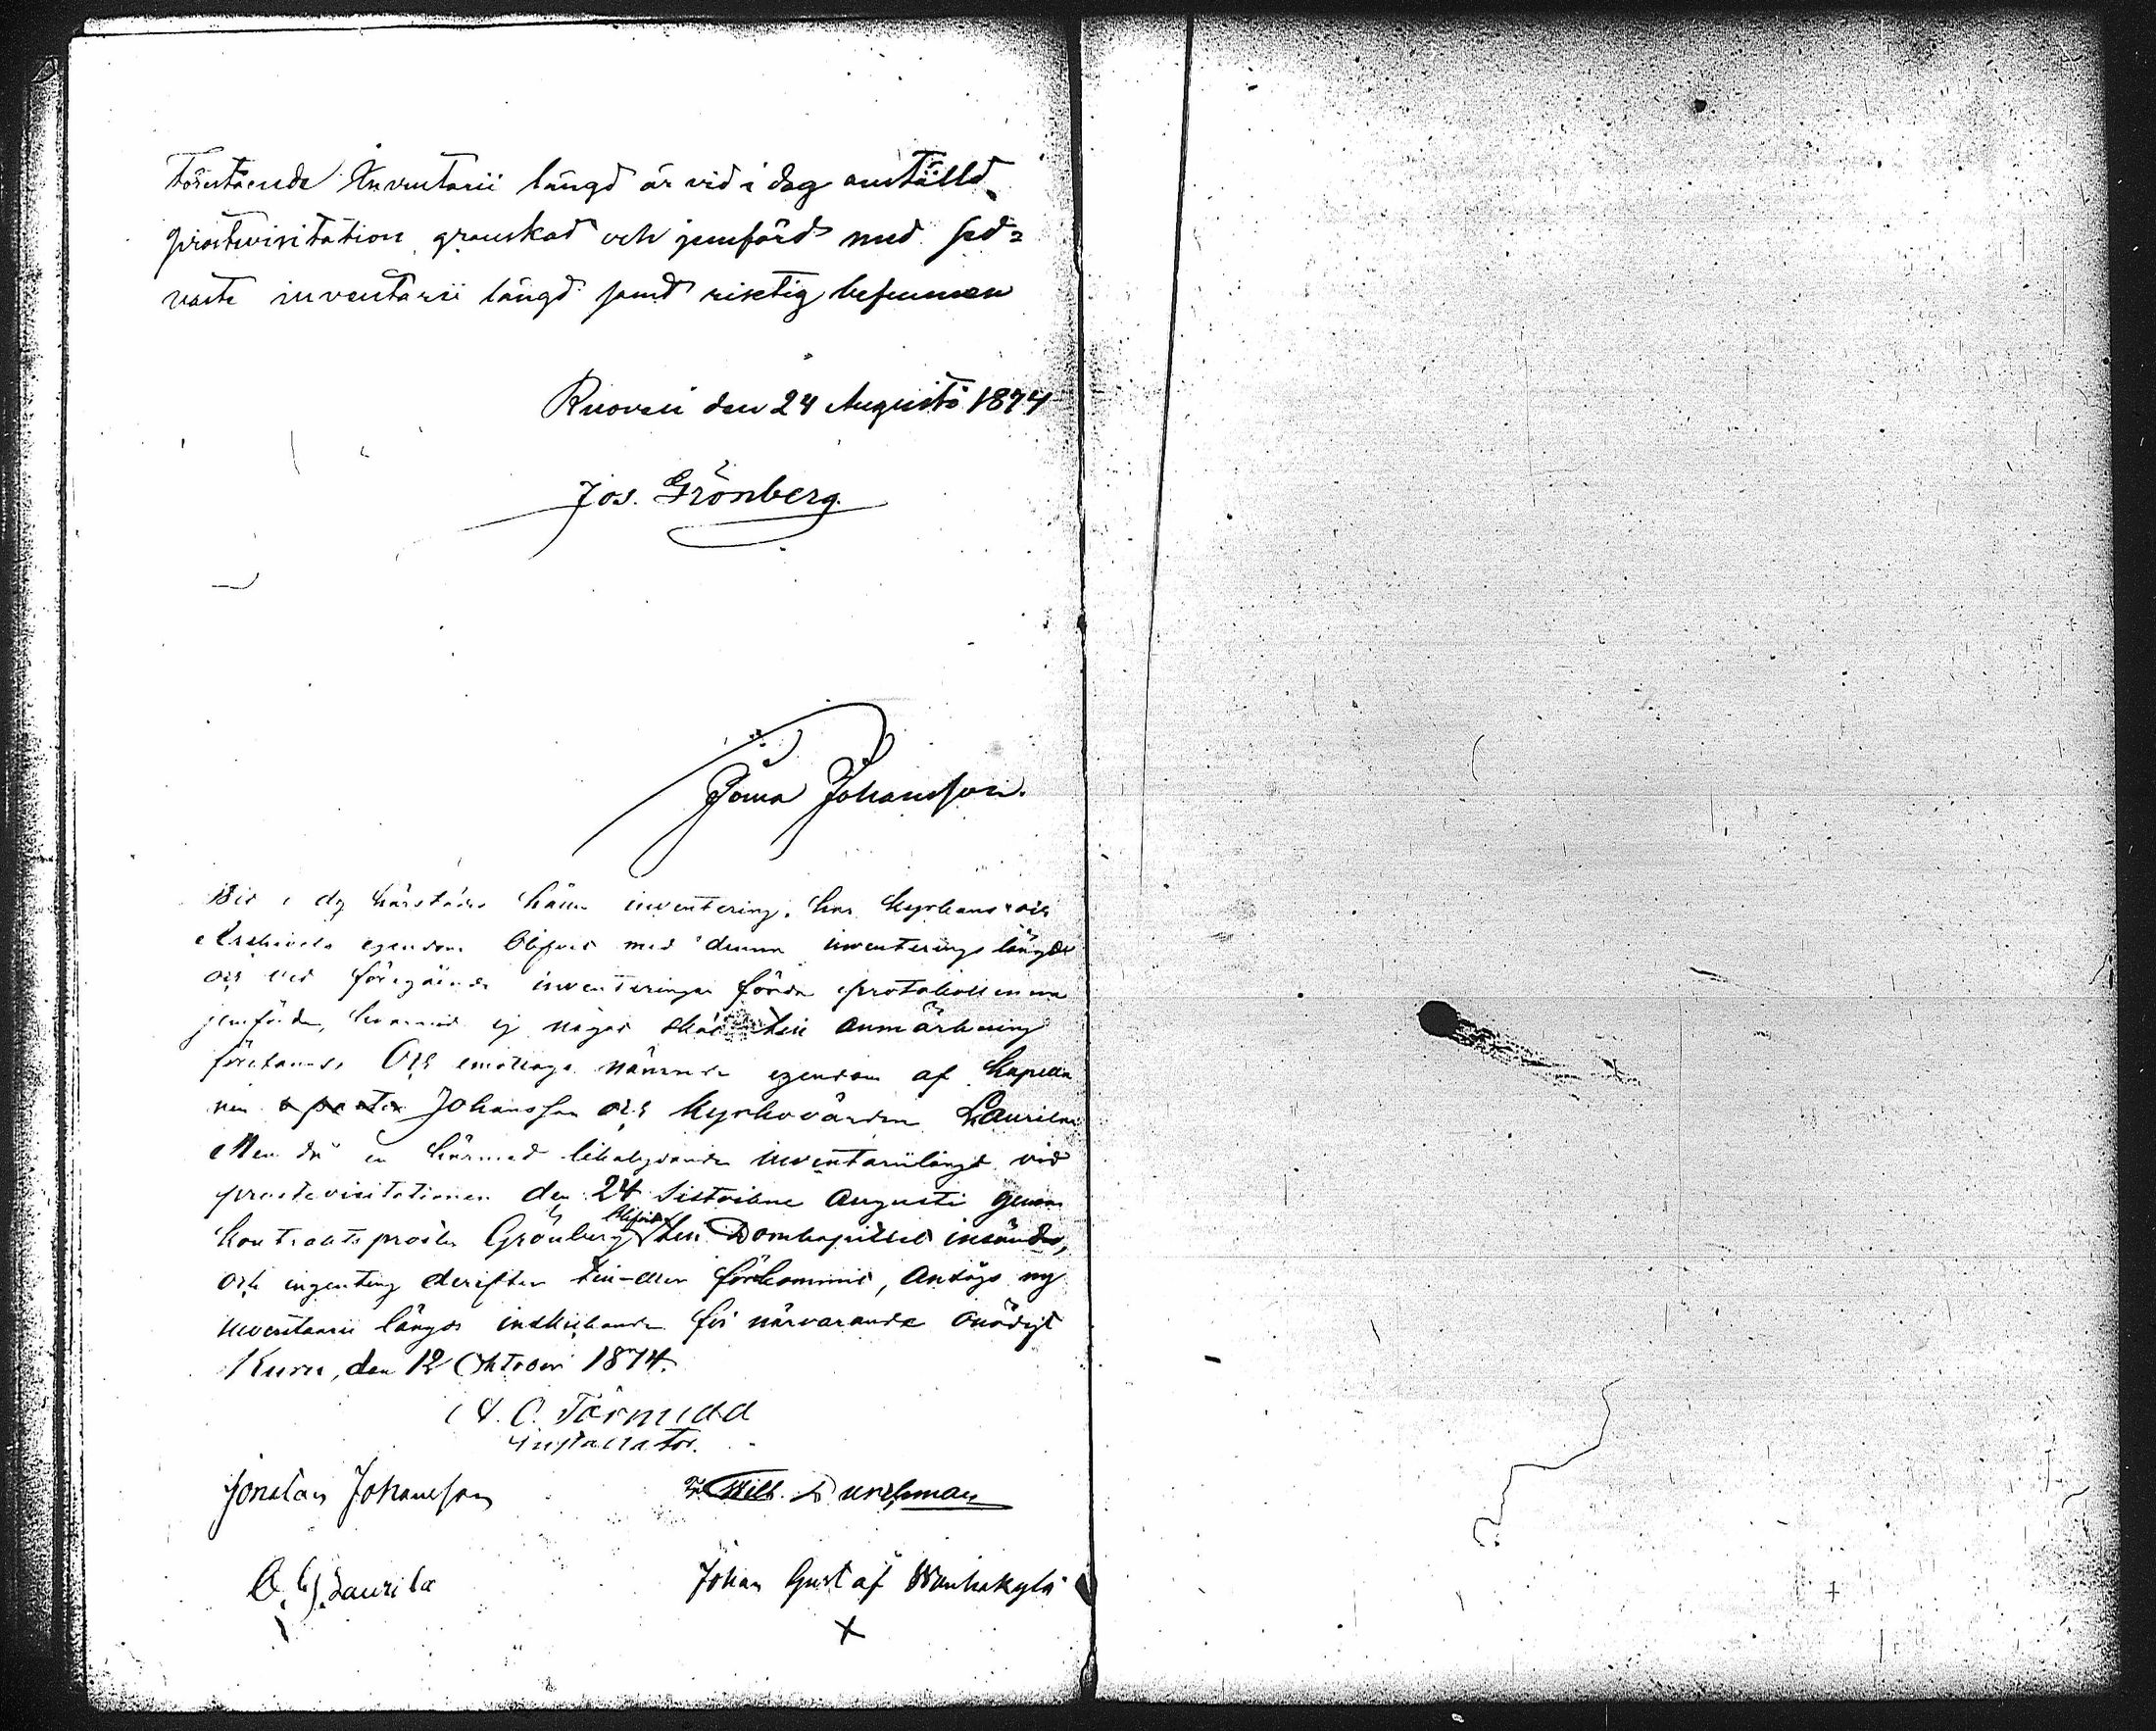 Förestående Inventarii längd är vid i dag anstäld
prostvisitation granskad och jemförd med sed-
naste inventarii längd samt riktig befunnen
Ruovesi den 24 Augusti 1874
Jos. Grönberg.
Johansson.
Vid i dag härstädes hållen inventering, har kyrkans och
egendom blifvit med denna inventerings längd
och vid föregående inventeringar förda protokollerna
jemförda, hvarvid ej något skäl till anmärkning
förekommit. Och emottogs nämnda egendom af kapella
nen Johansson och kyrkovärden Laurila
Men då en härmed likalydande inventariilängd vid
prostevisitationen den 24 sistvikne Augusti genom
kontraktsprosten Grönberg blifvit till Domkapitlet insänd,
och ingenting derefter till-eller förkommit, ansågs ny
inventarii längds inskickande för närvarande onödigt
Kuru, den 12 Oktober 1874.
C. Törnudd
Jonatan Johansson
Wilh. Durchman
O. G. Laurila
Johan Gustaf Wanhakylä
X